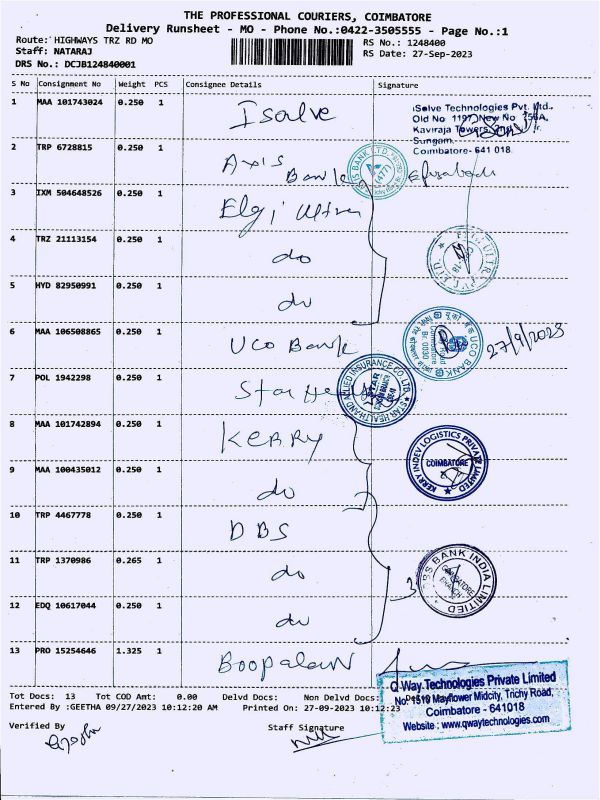 THE PROFESSIONAL COURIERS, COIMBATORE
Delivery Runsheet - MO - Phone No.:0422-3505555 - Page No.:1
Route: HIGHWAYS TRZ RD MO
RS No.: 1248400
Staff: NATARAJ
RS Date: 27-Sep-2023
DRS No.: DCJB124840001
S No Consignment No Weight PCS Consignee Details Signature
1 MAA 101743024 0.250 1 Isolve
iSolve Technologies Pvt. Ltd.
Old No 1197, New No
Kaviraja Towers,
Sungam,
Coimbatore- 641 018.
2 TRP 6728815 0.250 1 Axis Bank
3 IXM 504648526 0.250 1 Elgi Ultra
4 TRZ 21113154 0.250 1 do
5 HYD 82950991 0.250 1 do
6 MAA 106508865 0.250 1 UCO Bank
UCO BANK
27/9/2023
7 POL 1942298 0.250 1 Star Health
STAR HEALTH AND ALLIED INSURANCE CO. LTD.
8 MAA 101742894 0.250 1 KERRY
KERRY INDEV LOGISTICS PRIVATE LIMITED
COIMBATORE
9 MAA 100435012 0.250 1 do
10 TRP 4467778 0.250 1 DBS
11 TRP 1370986 0.265 1 do
3
DBS BANK INDIA LIMITED
COIMBATORE BRANCH
12 EDQ 10617044 0.250 1 do
13 PRO 15254646 1.325 1 Boopalan
Q-Way Technologies Private Limited
No: 1519 Mayflower Midcity, Trichy Road,
Coimbatore - 641018
Website : www.qwaytechnologies.com
Tot Docs: 13 Tot COD Amt: 0.00 Delvd Docs: Non Delvd Docs:
Entered By :GEETHA 09/27/2023 10:12:20 AM Printed On: 27-09-2023 10:12:23
Verified By Staff Signature